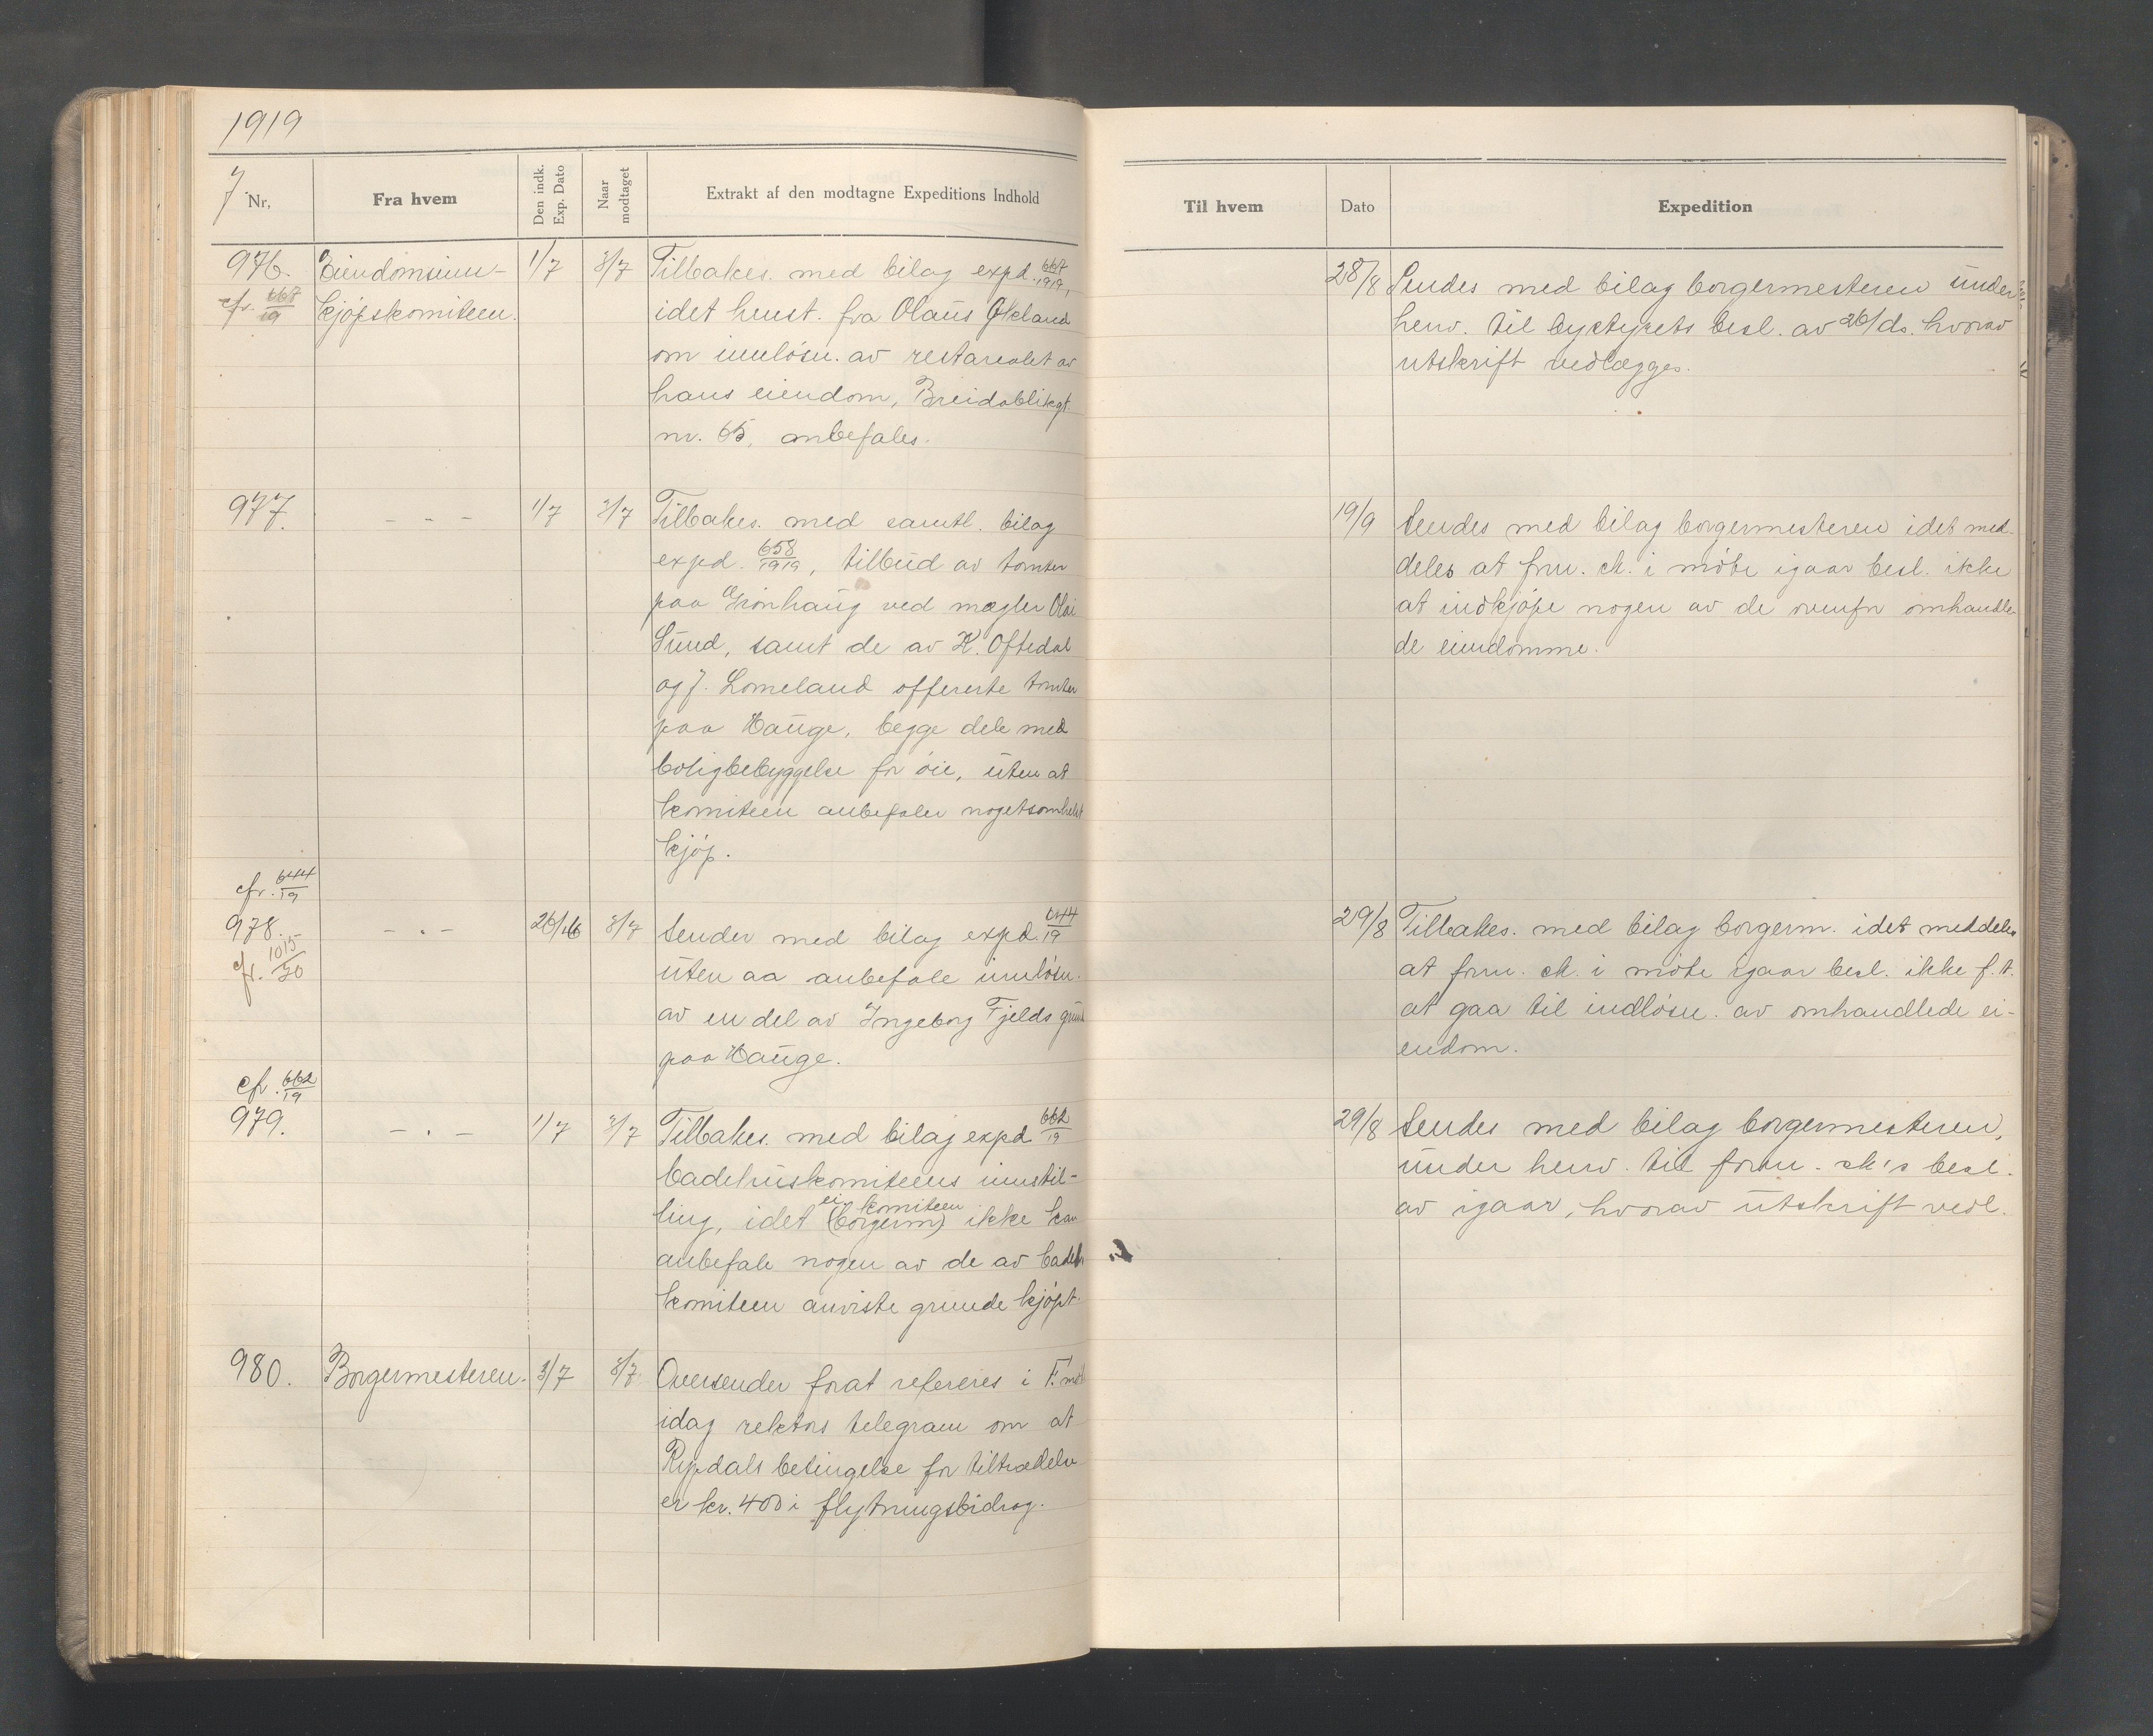 1919
7
Nr.
Fra hvem
Den indk. Exp. Dato
Naar modtaget
Extrakt af den modtagne Expeditions Indhold
976.
cfr. 667/19
Eiendomsinn-
kjøpskomiteen.
1/7
3/7
Tilbakes. med bilag expd. 667/1919,
idet henst. fra Olaus Økland
om innløsn. av restarealet av
hans eiendom, Breidablikgt.
nr. 65, anbefales.
977.
- - -
1/7
3/7
Tilbakes. med samtl. bilag
expd. 658/1919, tilbud av tomter
paa Grønhaug ved mægler Olai
Sund, samt de av K. Oftedal
og J. Lomeland offererte tomter
paa Hauge, begge dele med
boligbebyggelse for øie, uten at
komiteen anbefaler nogetsomhelst
kjøp.
cfr. 644/19
978.
cfr. 1015/20
- . -
26/6
3/7
Sender med bilag expd. 644/19
uten aa anbefale innløsn.
av en del av Ingeborg Fjelds grund
paa Hauge.
cfr. 662/19
979.
- . -
1/7
3/7
Tilbakes. med bilag expd 662/19
badehuskomiteens innstil-
ling, idet (borgerm) ei. komiteen ikke kan
anbefale nogen av de av badeh.
komiteen anviste grunde kjøpt.
980.
Borgermesteren.
3/7
3/7
Oversender forat refereres i F. møte
idag rektors telegram om at
Rypdals betingelse for tiltrædelse
er kr. 400 i flytningsbidrag.
Til hvem
Dato
Expedition
28/8
Sendes med bilag borgermesteren under
henv. til bystyrets besl. av 26/ ds. hvorav
utskrift vedlægges.
19/9
Sendes med bilag borgermesteren idet med-
deles at form. sk. i møte igaar besl. ikke
at indkjøpe nogen av de ovenfor omhandle-
de eiendomme.
29/8
Tilbakes. med bilag borgerm. idet meddeles
at form. sk. i møte igaar besl. ikke f.t.
at gaa til indløsn. av omhandlede ei-
endom.
29/8
Sendes med bilag borgermesteren,
under henv. til form. sk's besl.
av igaar, hvorav utskrift vedl.